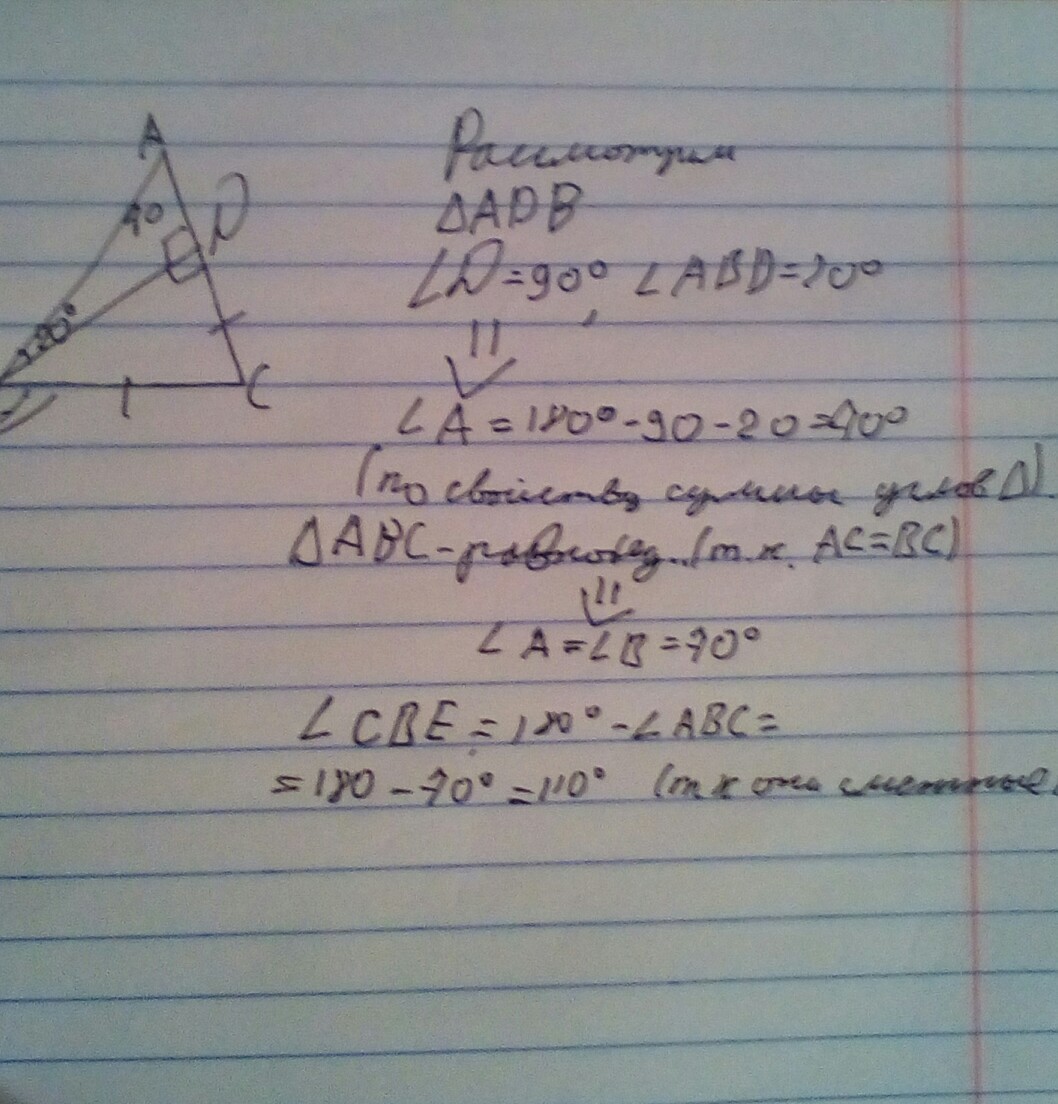 A
70
D
20°
C
Рассмотрим
ΔADB
∠D=90°, ∠ABD=20°
⇓
∠A=180°-90-20=70°
(по свойству суммы углов Δ).
ΔABC-равнобед. (т.к. AC=BC)
⇓
∠A=∠B=70°
∠CBE=180°-∠ABC=
=180-70°=110° (т к они смежные)